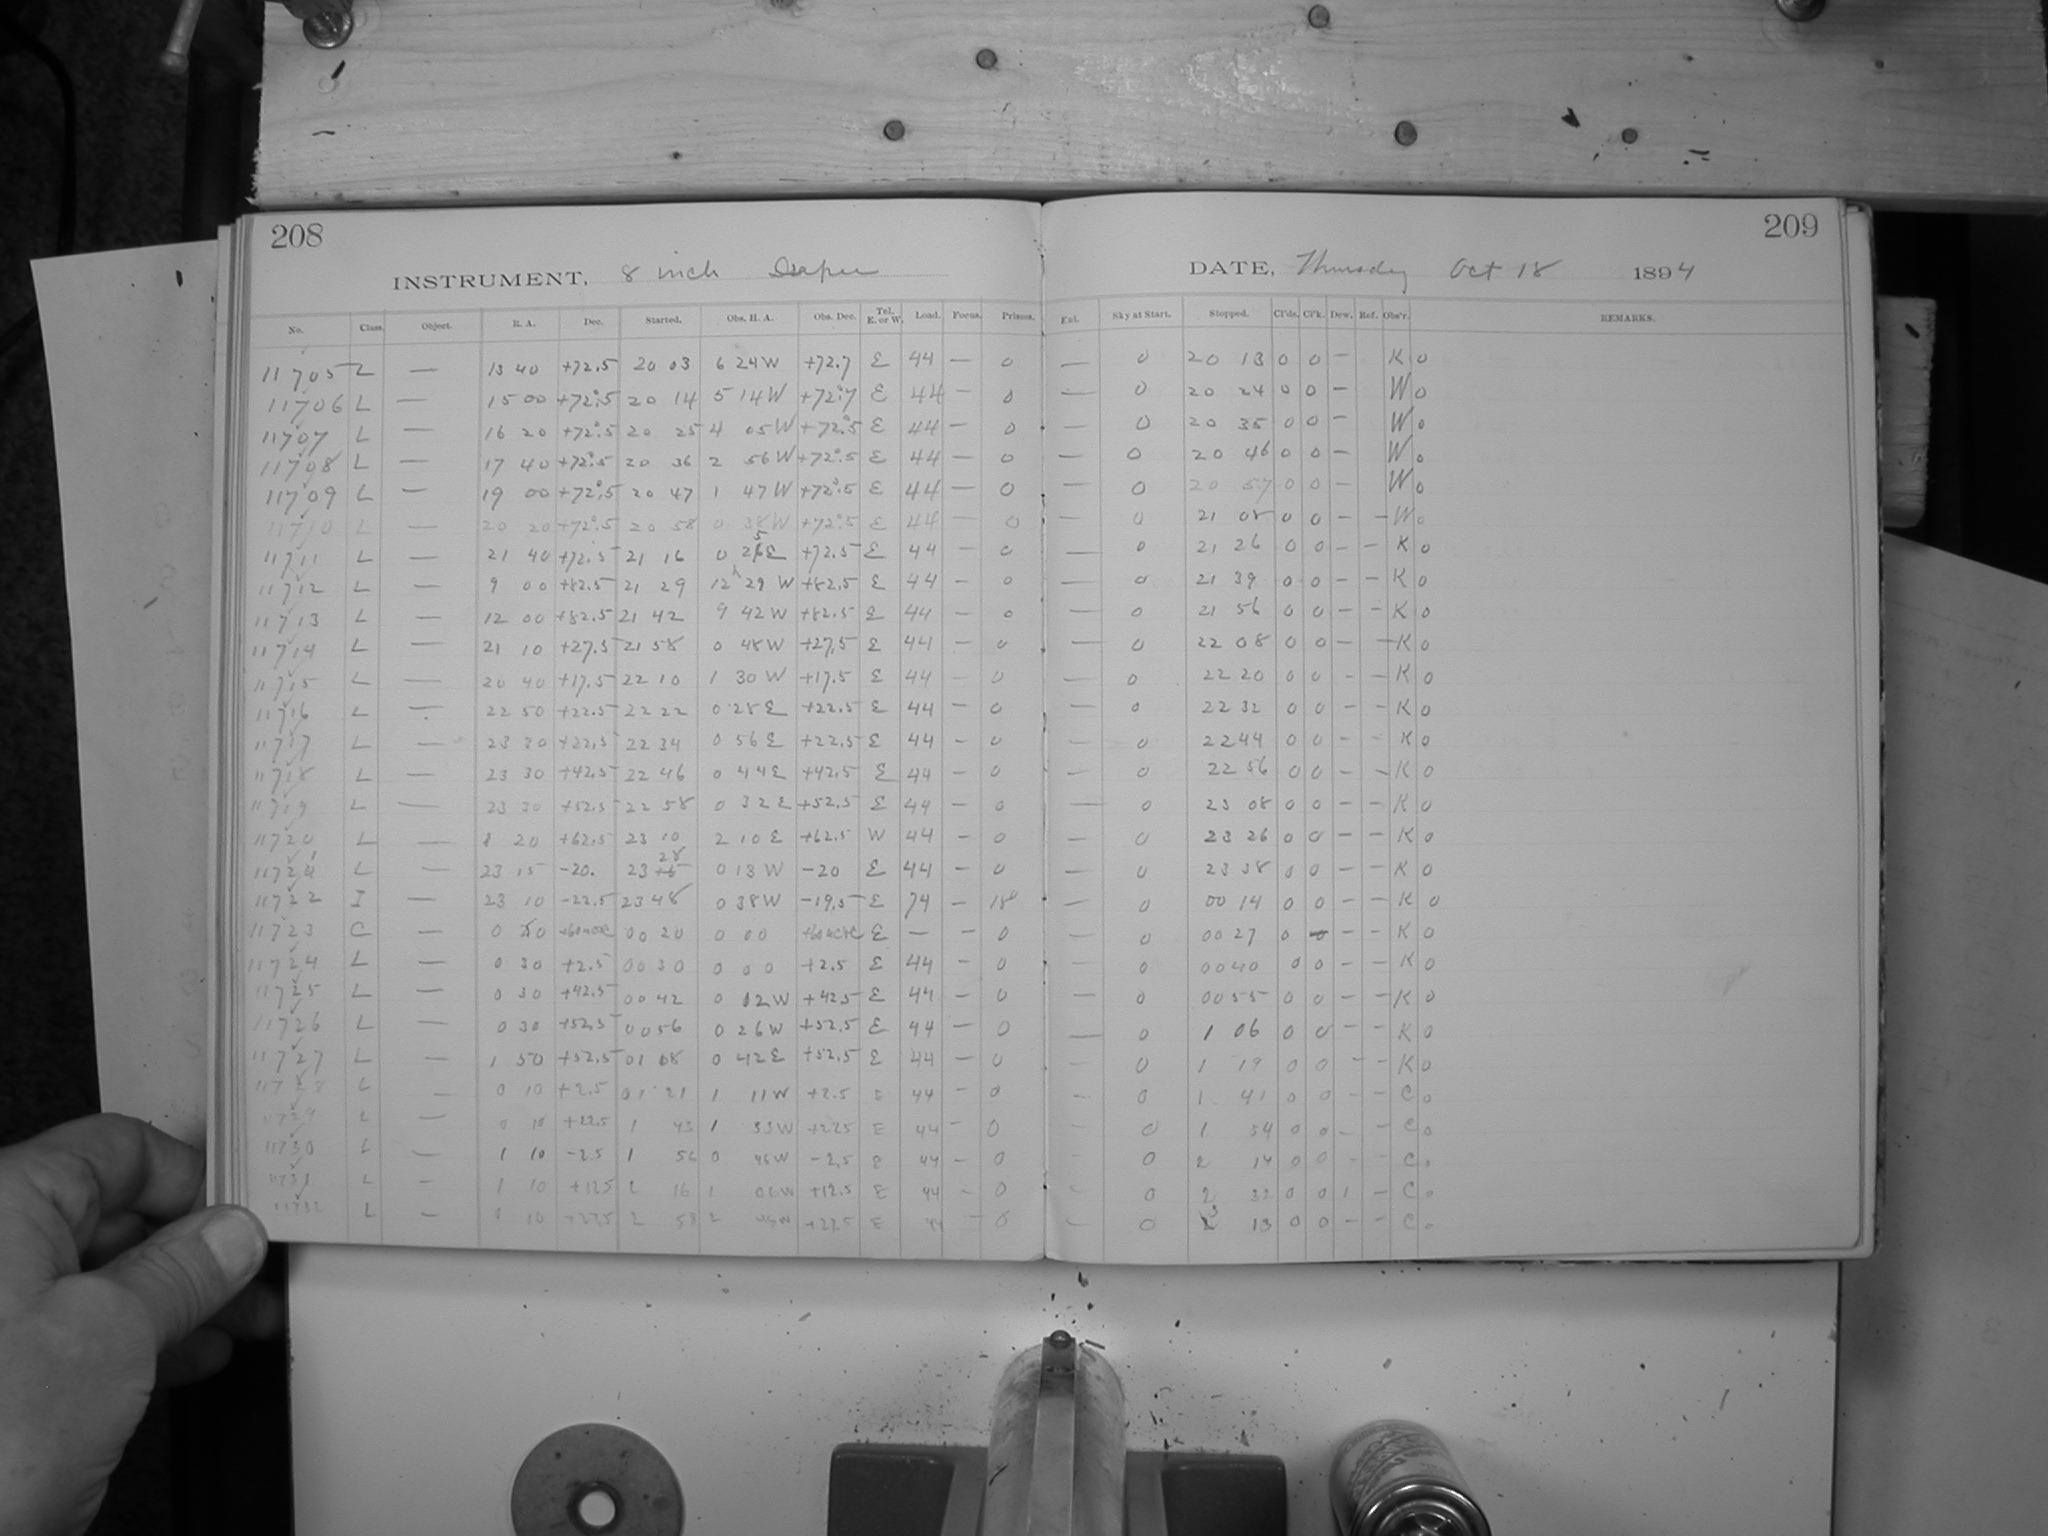 208
209
INSTRUMENT, 8 inch Draper
DATE, Thursday Oct 18 1894
No. Class. Object. R. A. Dec. Started. Obs. H. A. Obs. Dec. Tel. E. or W. Load. Focus. Prisms. Ent. Sky at Start. Stopped. Cl'ds. Cl'k. Dew. Ref. Obs'r. REMARKS.
11705 L — 13 40 +72.5 20 03 6 24 W +72.7 E 44 — 0 — 0 20 13 0 0 – K 0
11706 L — 15 00 +72°.5 20 14 5 14 W +72°.7 E 44 — 0 — 0 20 24 0 0 – W 0
11707 L — 16 20 +72°.5 20 25 4 05 W +72°.5 E 44 — 0 — 0 20 35 0 0 – W 0
11708 L — 17 40 +72°.5 20 36 2 56 W +72°.5 E 44 — 0 — 0 20 46 0 0 – W 0
11709 L — 19 00 +72°.5 20 47 1 47 W +72°.5 E 44 — 0 — 0 20 57 0 0 – W 0
11710 L — 20 20 +72°.5 20 58 0 38 W +72°.5 E 44 — 0 — 0 21 08 0 0 – – W 0
11711 L — 21 40 +72.5 21 16 0 25 E +72.5 E 44 – 0 — 0 21 26 0 0 – – K 0
11712 L — 9 00 +82.5 21 29 12 h 29 W +82.5 E 44 – 0 — 0 21 39 0 0 – – K 0
11713 L — 12 00 +82.5 21 42 9 42 W +82.5 E 44 – 0 — 0 21 56 0 0 – – K 0
11714 L — 21 10 +27.5 21 58 0 48 W +27.5 E 44 – 0 — 0 22 08 0 0 – – K 0
11715 L — 20 40 +17.5 22 10 1 30 W +17.5 E 44 – 0 — 0 22 20 0 0 – – K 0
11716 L — 22 50 +22.5 22 22 0 28 E +22.5 E 44 – 0 — 0 22 32 0 0 – – K 0
11717 L — 23 30 +22.5 22 34 0 56 E +22.5 E 44 – 0 — 0 22 44 0 0 – – K 0
11718 L — 23 30 +42.5 22 46 0 44 E +42.5 E 44 – 0 — 0 22 56 0 0 – – K 0
11719 L — 23 30 +52.5 22 58 0 32 E +52.5 E 44 – 0 — 0 23 08 0 0 – – K 0
11720 L — 1 20 +62.5 23 10 2 10 E +62.5 W 44 – 0 — 0 23 26 0 0 – – K 0
11721 L — 23 15 -20. 23 28 0 13 W -20 E 44 – 0 — 0 23 38 0 0 – – K 0
11722 I — 23 10 -22.5 23 48 0 38 W -19.5 E 74 – 18 — 0 00 14 0 0 – – K 0
11723 C — 0 20 00 20 0 00 E — – 0 — 0 00 27 0 0 – – K 0
11724 L — 0 30 +2.5 00 30 0 0 0 +2.5 E 44 – 0 — 0 00 40 0 0 – – K 0
11725 L — 0 30 +42.5 00 42 0 12 W +42.5 E 44 – 0 — 0 00 55 0 0 – – K 0
11726 L — 0 30 +52.5 00 56 0 26 W +52.5 E 44 – 0 — 0 1 06 0 0 – – K 0
11727 L — 1 50 +52.5 01 08 0 42 E +52.5 E 44 – 0 — 0 1 19 0 0 – – K 0
11728 L — 0 10 +2.5 01 21 1 11 W +2.5 E 44 – 0 — 0 1 41 0 0 – – C 0
11729 L — 0 10 +22.5 1 43 1 33 W +22.5 E 44 – 0 — 0 1 54 0 0 – – C 0
11730 L — 1 10 -2.5 1 56 0 46 W -2.5 E 44 – 0 — 0 2 14 0 0 – – C 0
11731 L — 1 10 +12.5 2 16 1 06 W +12.5 E 44 – 0 — 0 2 32 0 0 1 – C 0
11732 L — 0 10 +27.5 2 58 2 48 W +27.5 E 44 – 0 — 0 3 13 0 0 – – C 0